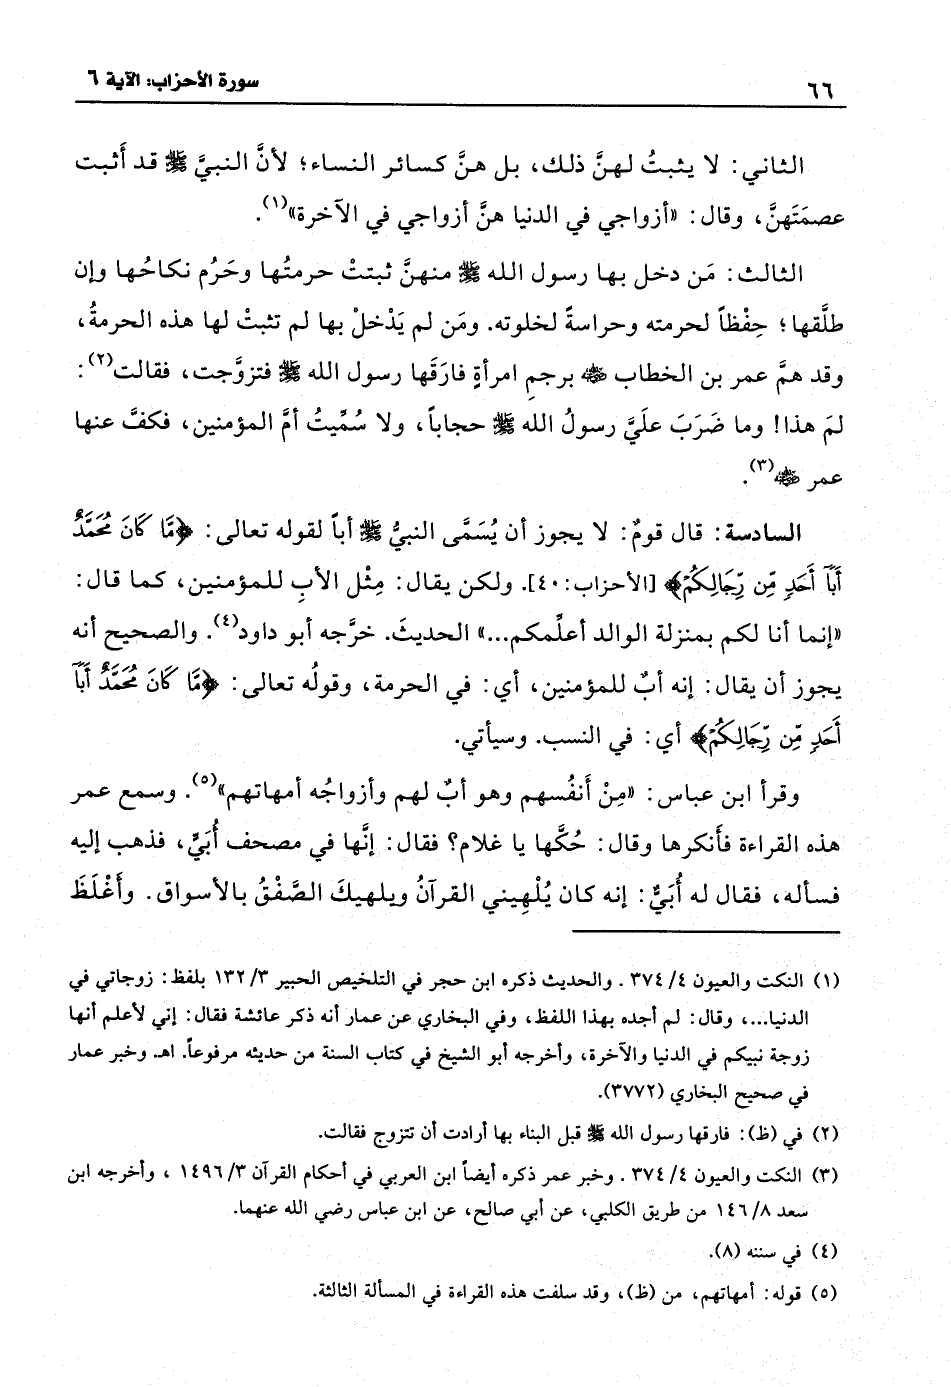 ٦٦
سورة الأحزاب: الآية ٦
الثاني: لا يثبتُ لهنَّ ذلك، بل هنَّ كسائر النساء؛ لأنَّ النبيَّ ﷺ قد أَثبت
عصمَتَهنَّ، وقال: «أزواجي في الدنيا هنَّ أزواجي في الآخرة»(١).
الثالث: مَن دخل بها رسول الله ﷺ منهنَّ ثبتتْ حرمتُها وحَرُم نكاحُها وإن
طلَّقها؛ حِفْظاً لحرمته وحراسةً لخلوته. ومَن لم يَدْخلْ بها لم تثبتْ لها هذه الحرمةُ،
وقد همَّ عمر بن الخطاب ﵁ برجمِ امرأةٍ فارَقَها رسول الله ﷺ فتزوَّجت، فقالت(٢):
لمَ هذا! وما ضَرَبَ علَيَّ رسولُ الله ﷺ حجاباً، ولا سُمِّيتُ أمَّ المؤمنين، فكفَّ عنها
عمر ﵁(٣).
السادسة: قال قومٌ: لا يجوز أن يُسَمَّى النبيُّ ﷺ أباً لقوله تعالى: ﴿مَّا كَانَ مُحَمَّدٌ
أَبَآ أَحَدٍ مِّن رِّجَالِكُمْ﴾ [الأحزاب:٤٠]. ولكن يقال: مِثْل الأبِ للمؤمنين، كما قال:
«إنما أنا لكم بمنزلة الوالد أعلِّمكم...» الحديثَ. خرَّجه أبو داود(٤). والصحيح أنه
يجوز أن يقال: إنه أبٌ للمؤمنين، أي: في الحرمة، وقولُه تعالى: ﴿مَّا كَانَ مُحَمَّدٌ أَبَآ
أَحَدٍ مِّن رِّجَالِكُمْ﴾ أي: في النسب. وسيأتي.
وقرأ ابن عباس: «مِنْ أَنفُسهم وهو أبٌ لهم وأزواجُه أمهاتهم»(٥). وسمع عمر
هذه القراءة فأَنكرها وقال: حُكَّها يا غلام؟ فقال: إنَّها في مصحف أُبَيٍّ، فذهب إليه
فسأله، فقال له أُبَيٌّ: إنه كان يُلْهِيني القرآنُ ويلهيكَ الصَّفْقُ بالأسواق. وأَغْلَظَ
(١) النكت والعيون ٤/ ٣٧٤ . والحديث ذكره ابن حجر في التلخيص الحبير ٣/ ١٣٢ بلفظ: زوجاتي في
الدنيا...، وقال: لم أجده بهذا اللفظ، وفي البخاري عن عمار أنه ذكر عائشة فقال: إني لأعلم أنها
زوجة نبيكم في الدنيا والآخرة، وأخرجه أبو الشيخ في كتاب السنة من حديثه مرفوعاً. اهـ. وخبر عمار
في صحيح البخاري (٣٧٧٢).
(٢) في (ظ): فارقها رسول الله ﷺ قبل البناء بها أرادت أن تتزوج فقالت.
(٣) النكت والعيون ٤/ ٣٧٤ . وخبر عمر ذكره أيضاً ابن العربي في أحكام القرآن ٣/ ١٤٩٦ ، وأخرجه ابن
سعد ٨/ ١٤٦ من طريق الكلبي، عن أبي صالح، عن ابن عباس رضي الله عنهما.
(٤) في سننه (٨).
(٥) قوله: أمهاتهم، من (ظ)، وقد سلفت هذه القراءة في المسألة الثالثة.